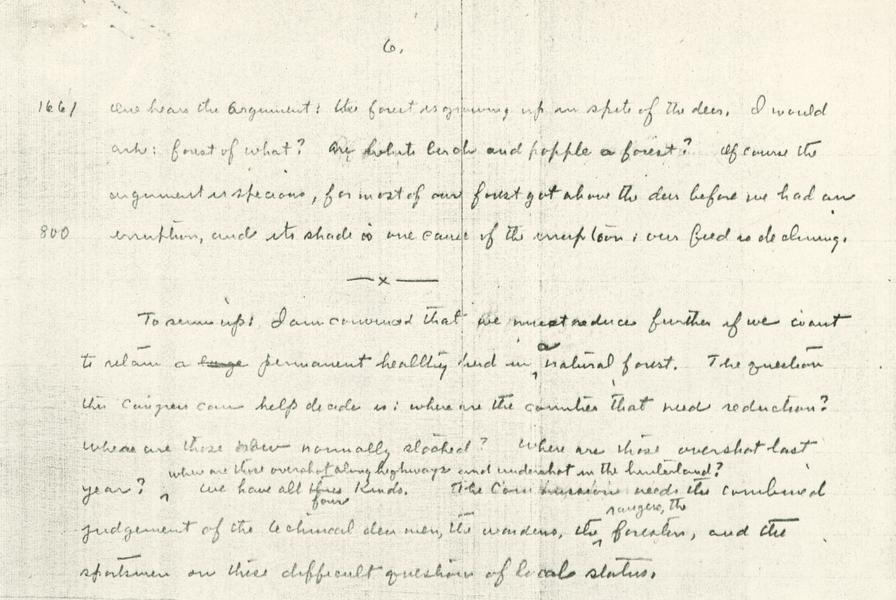 6.
1661 One hears the argument: the forest is growing up in spite of the deer. I would
ask: forest of what? Are white birch and popple a forest? Of course the
argument is specious, for most of our forest got above the deer before we had an
800 irruption, and its shade is one cause of the irruption; our feed is declining.
—x—
To sum up: I am convinced that we must reduce further if we want
to retain a large permanent healthy herd in a natural forest. The question
this Congress can help decide is: where are the counties that need reduction?
Where are those now normally stocked? Where are those overshot last
where are those overshot along highways and undershot in the hinterland?
year? We have all three kinds. The Commission needs the combined
four
rangers, the
judgement of the technical deer men, the wardens, the foresters, and the
sportsmen on this difficult question of local status.